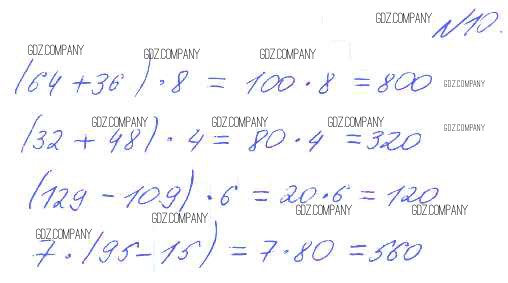 GDZ.COMPANY
№10.
GDZ.COMPANY GDZ.COMPANY GDZ.COMPANY
(64 + 36) · 8 = 100 · 8 = 800 GDZ.COMPANY
GDZ.COMPANY GDZ.COMPANY GDZ.COMPANY GDZ.COMPANY
(32 + 48) · 4 = 80 · 4 = 320
(129 - 109) · 6 = 20 · 6 = 120
GDZ.COMPANY GDZ.COMPANY GDZ.COMPANY
GDZ.COMPANY
7 · (95 - 15) = 7 · 80 = 560